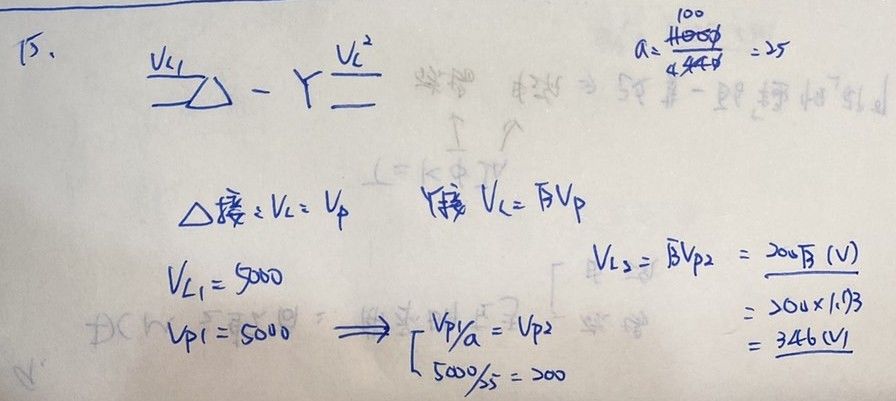 15.
VL1 △ - Y VL2
a = 11000/440 = 25
100
4
△接: VL = Vp
Y接 VL = √3Vp
VL1 = 5000
Vp1 = 5000 ⟹ Vp1/a = Vp2
5000/25 = 200
VL2 = √3Vp2 = 200√3 (V)
= 200×1.73
= 346 (V)